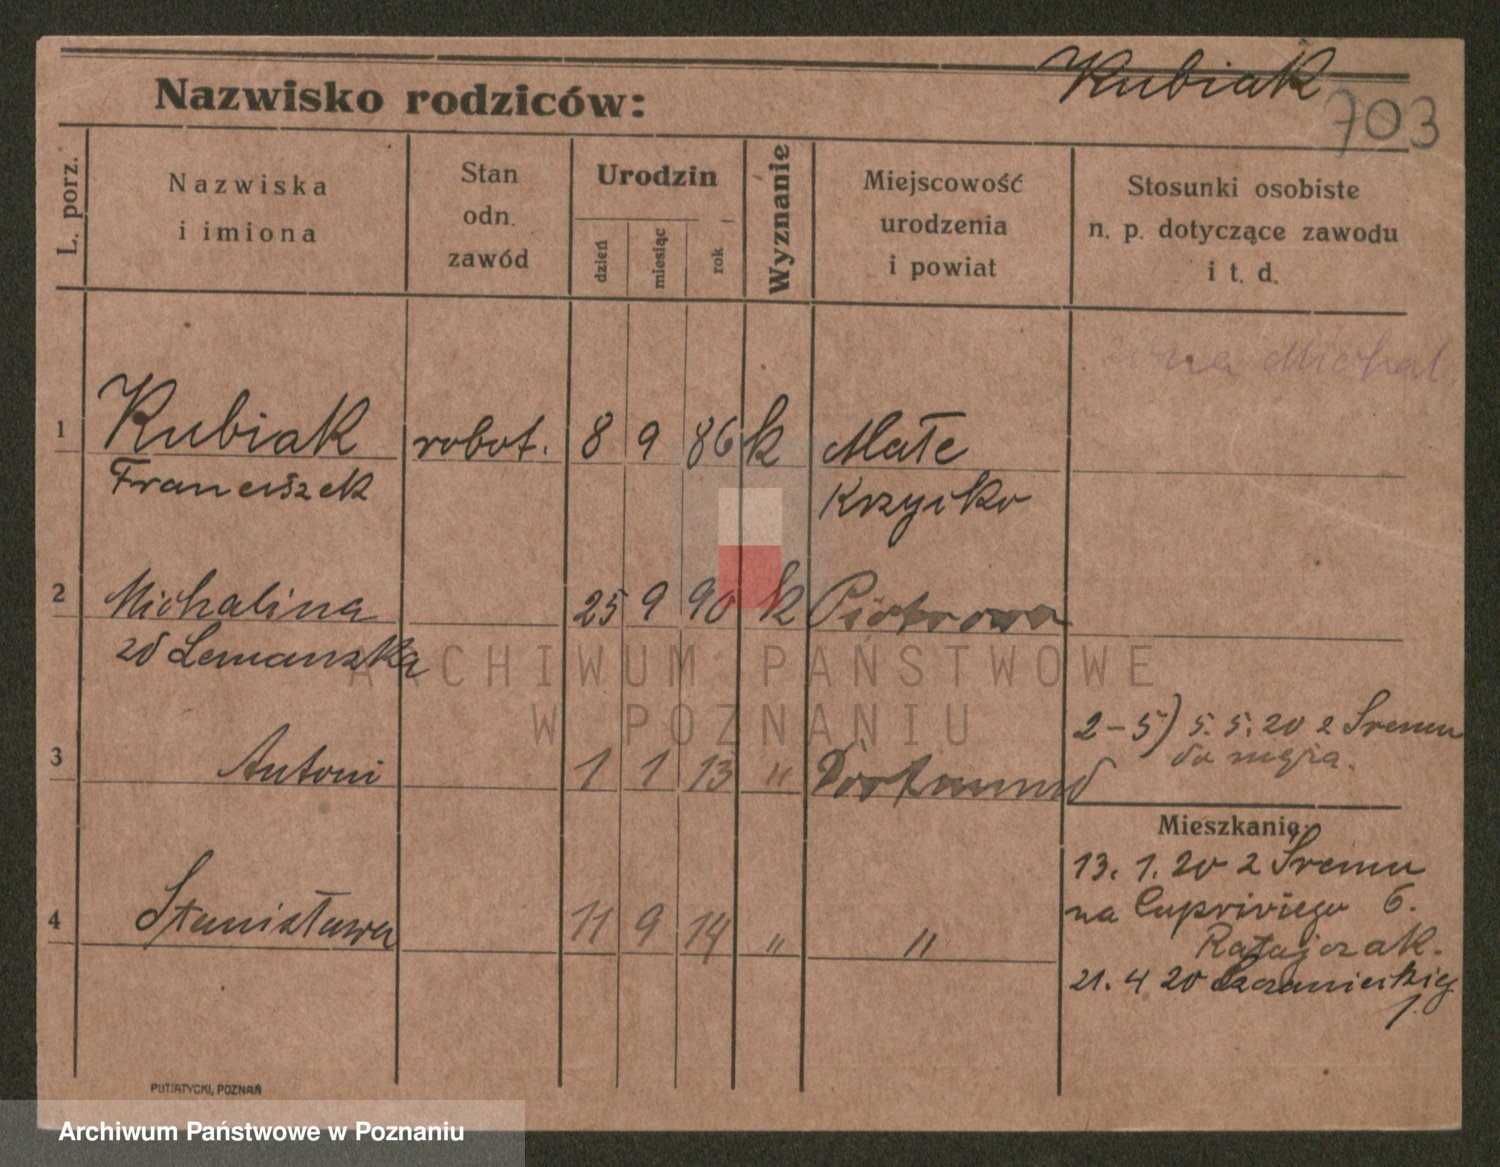 Kubiak
Nazwisko rodziców:
703
L. porz.
Nazwiska
i imiona
Stan
odn.
zawód
Urodzin
dzień
miesiąc
rok
Wyznanie
Miejscowość
urodzenia
i powiat
Stosunki osobiste
n. p. dotyczące zawodu
i t. d.
żona Michal.
1 Kubiak robot. 8 9 86 k Małe
Franciszek Krzycko
2 Michalina 25 9 90 k Piotrowo
zd Lemanska
2-5) 5.5.20 z Śremu
do męża.
3 Antoni 1 1 13 " Dortmund
Mieszkanie:
13. 1. 20 z Śremu
na Capriviego 6.
Ratajczak.
4 Stanisława 11 9 14 " "
21. 4 20
1.
PUTIATYCKI, POZNAŃ
ARCHIWUM PAŃSTWOWE
W POZNANIU
Archiwum Państwowe w Poznaniu